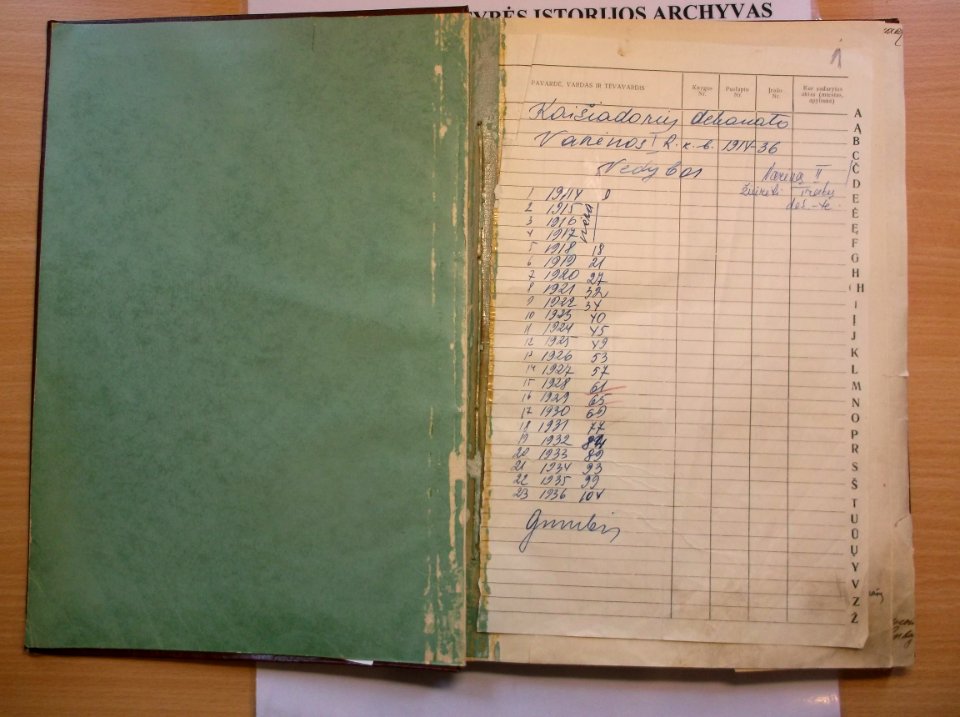 YBĖS ISTORIJOS ARCHYVAS
1
PAVARDĖ, VARDAS IR TĖVAVARDIS Knygos Nr. Puslapio Nr. Įrašo Nr. Kur sudarytas aktas (miestas, apylinkė)
Kaišiadorių dekanato
Varėnos I R. k. b. 1914-36
Vedybos
Varėna II
žiūrėti įrašų
1 1914
2 1915
3 1916
4 1917
5 1918 18
6 1919 21
7 1920 27
8 1921 32
9 1922 34
10 1923 40
11 1924 45
12 1925 49
13 1926 53
14 1927 57
15 1928 61
16 1929 65
17 1930 69
18 1931 77
19 1932 84
20 1933 89
21 1934 93
22 1935 99
23 1936 104
A
Ą
B
C
Č
D
E
Ė
Ę
F
G
H
I
Į
J
K
L
M
N
O
P
R
S
Š
T
U
Ū
Ų
Y
V
Z
Ž